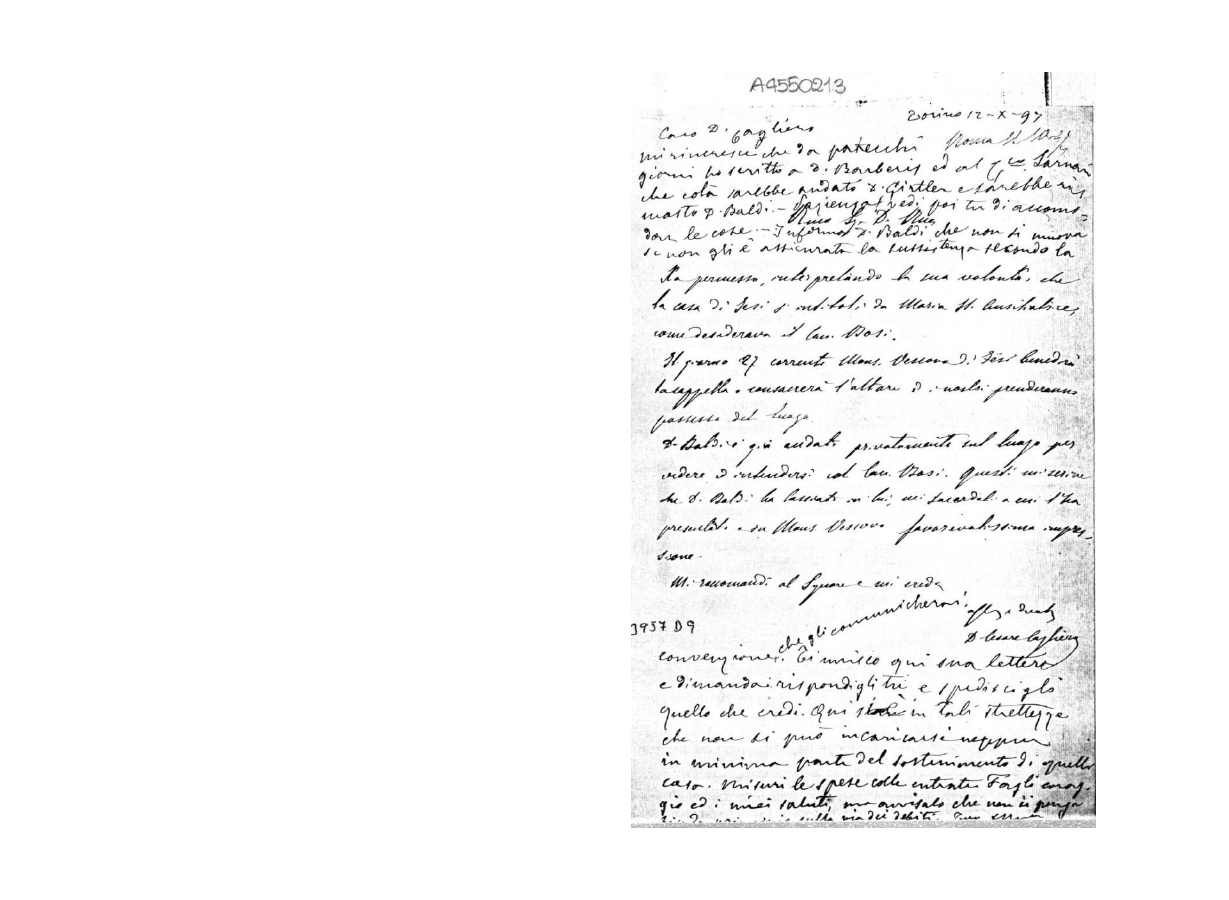 A4550213
Torino 12-X-97
Caro D. Cagliero
mi rincresce che da parecchi
Roma
giorni ho scritto a D. Barberis ed al
che colà sarebbe andato D. Gistler e sarebbe ri-
masto D. Baldi. - Sapienza! vedi poi tu di accomo-
dar le cose. - Informa D. Baldi che non si muova
se non gli è assicurata la sussistenza secondo la
Ha permesso, interpretando la sua volontà, che
la casa di Jesi s'intitoli da Maria SS. Ausiliatrice,
come desiderava il Can. Bosi.
Il giorno 27 corrente Mons. Vescovo di Jesi benedirà
la cappella e consacrerà l'altare ed i nostri prenderanno
possesso del luogo.
D. Baldi è già andato privatamente sul luogo per
vedere ed intendersi col Can. Bosi. Questi mi scrive
che D. Baldi ha lasciato in lui, nei sacerdoti a cui l'ha
presentato e in Mons Vescovo favorevolissima impres-
sione.
Mi raccomandi al Signore e mi creda
che gli comunicherai
3957 D9
D. Cesare Cagliero
convenzione. Ti unisco qui sua lettera
e dimanda: rispondigli tu e spediscigli
quello che credi. Qui in tali strettezze
che non si può incaricarsi neppur
in minima parte del sostenimento di quella
casa. Misuri le spese colle entrate. Fagli corag-
gio ed i miei saluti, ma avvisalo che non ci ponga
sulla via dei debiti.